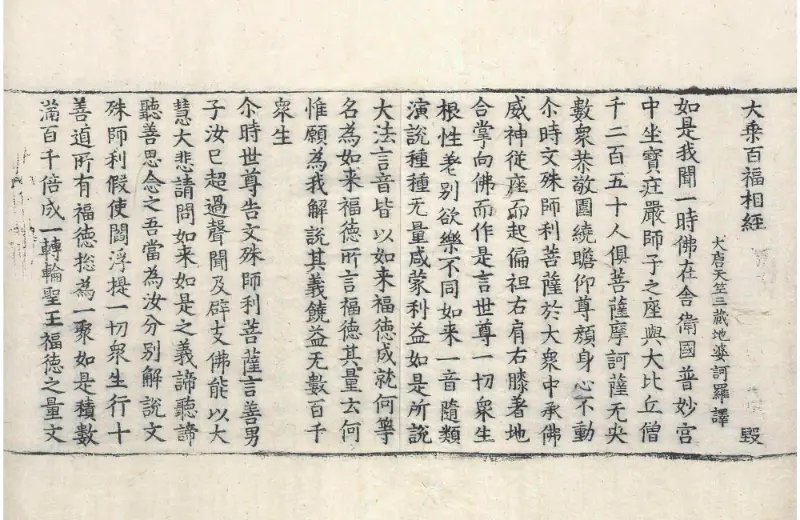 大乘百福相經 毀
大唐天竺三藏地婆訶羅譯
如是我聞一時佛在舍衛國普妙宮
中坐寶莊嚴師子之座與大比丘僧
千二百五十人俱菩薩摩訶薩无央
數衆恭敬圍繞瞻仰尊顔身心不動
尒時文殊師利菩薩於大衆中承佛
威神從座而起偏袒右肩右膝著地
合掌向佛而作是言世尊一切衆生
根性差別欲樂不同如来一音隨類
演說種種无量咸蒙利益如是所說
大法言音皆以如来福德成就何等
名為如来福德所言福德其量云何
惟願為我解說其義饒益无數百千
衆生
尒時世尊告文殊師利菩薩言善男
子汝已超過聲聞及辟支佛能以大
慧大悲請問如来如是之義諦聽諦
聽善思念之吾當為汝分別解說文
殊師利假使閻浮提一切衆生行十
善道所有福德揔為一聚如是積數
滿百千倍成一轉輪聖王福德之量文